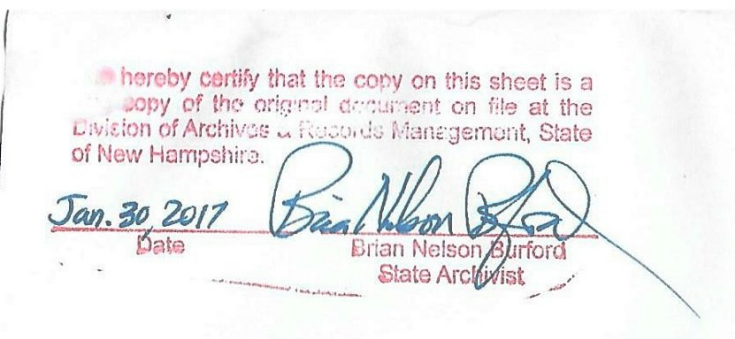 hereby certify that the copy on this sheet is a
copy of the original document on file at the
Division of Archives & Records Management, State
of New Hampshire.
Jan. 30, 2017 Brian Nelson Burford
Date Brian Nelson Burford
State Archivist